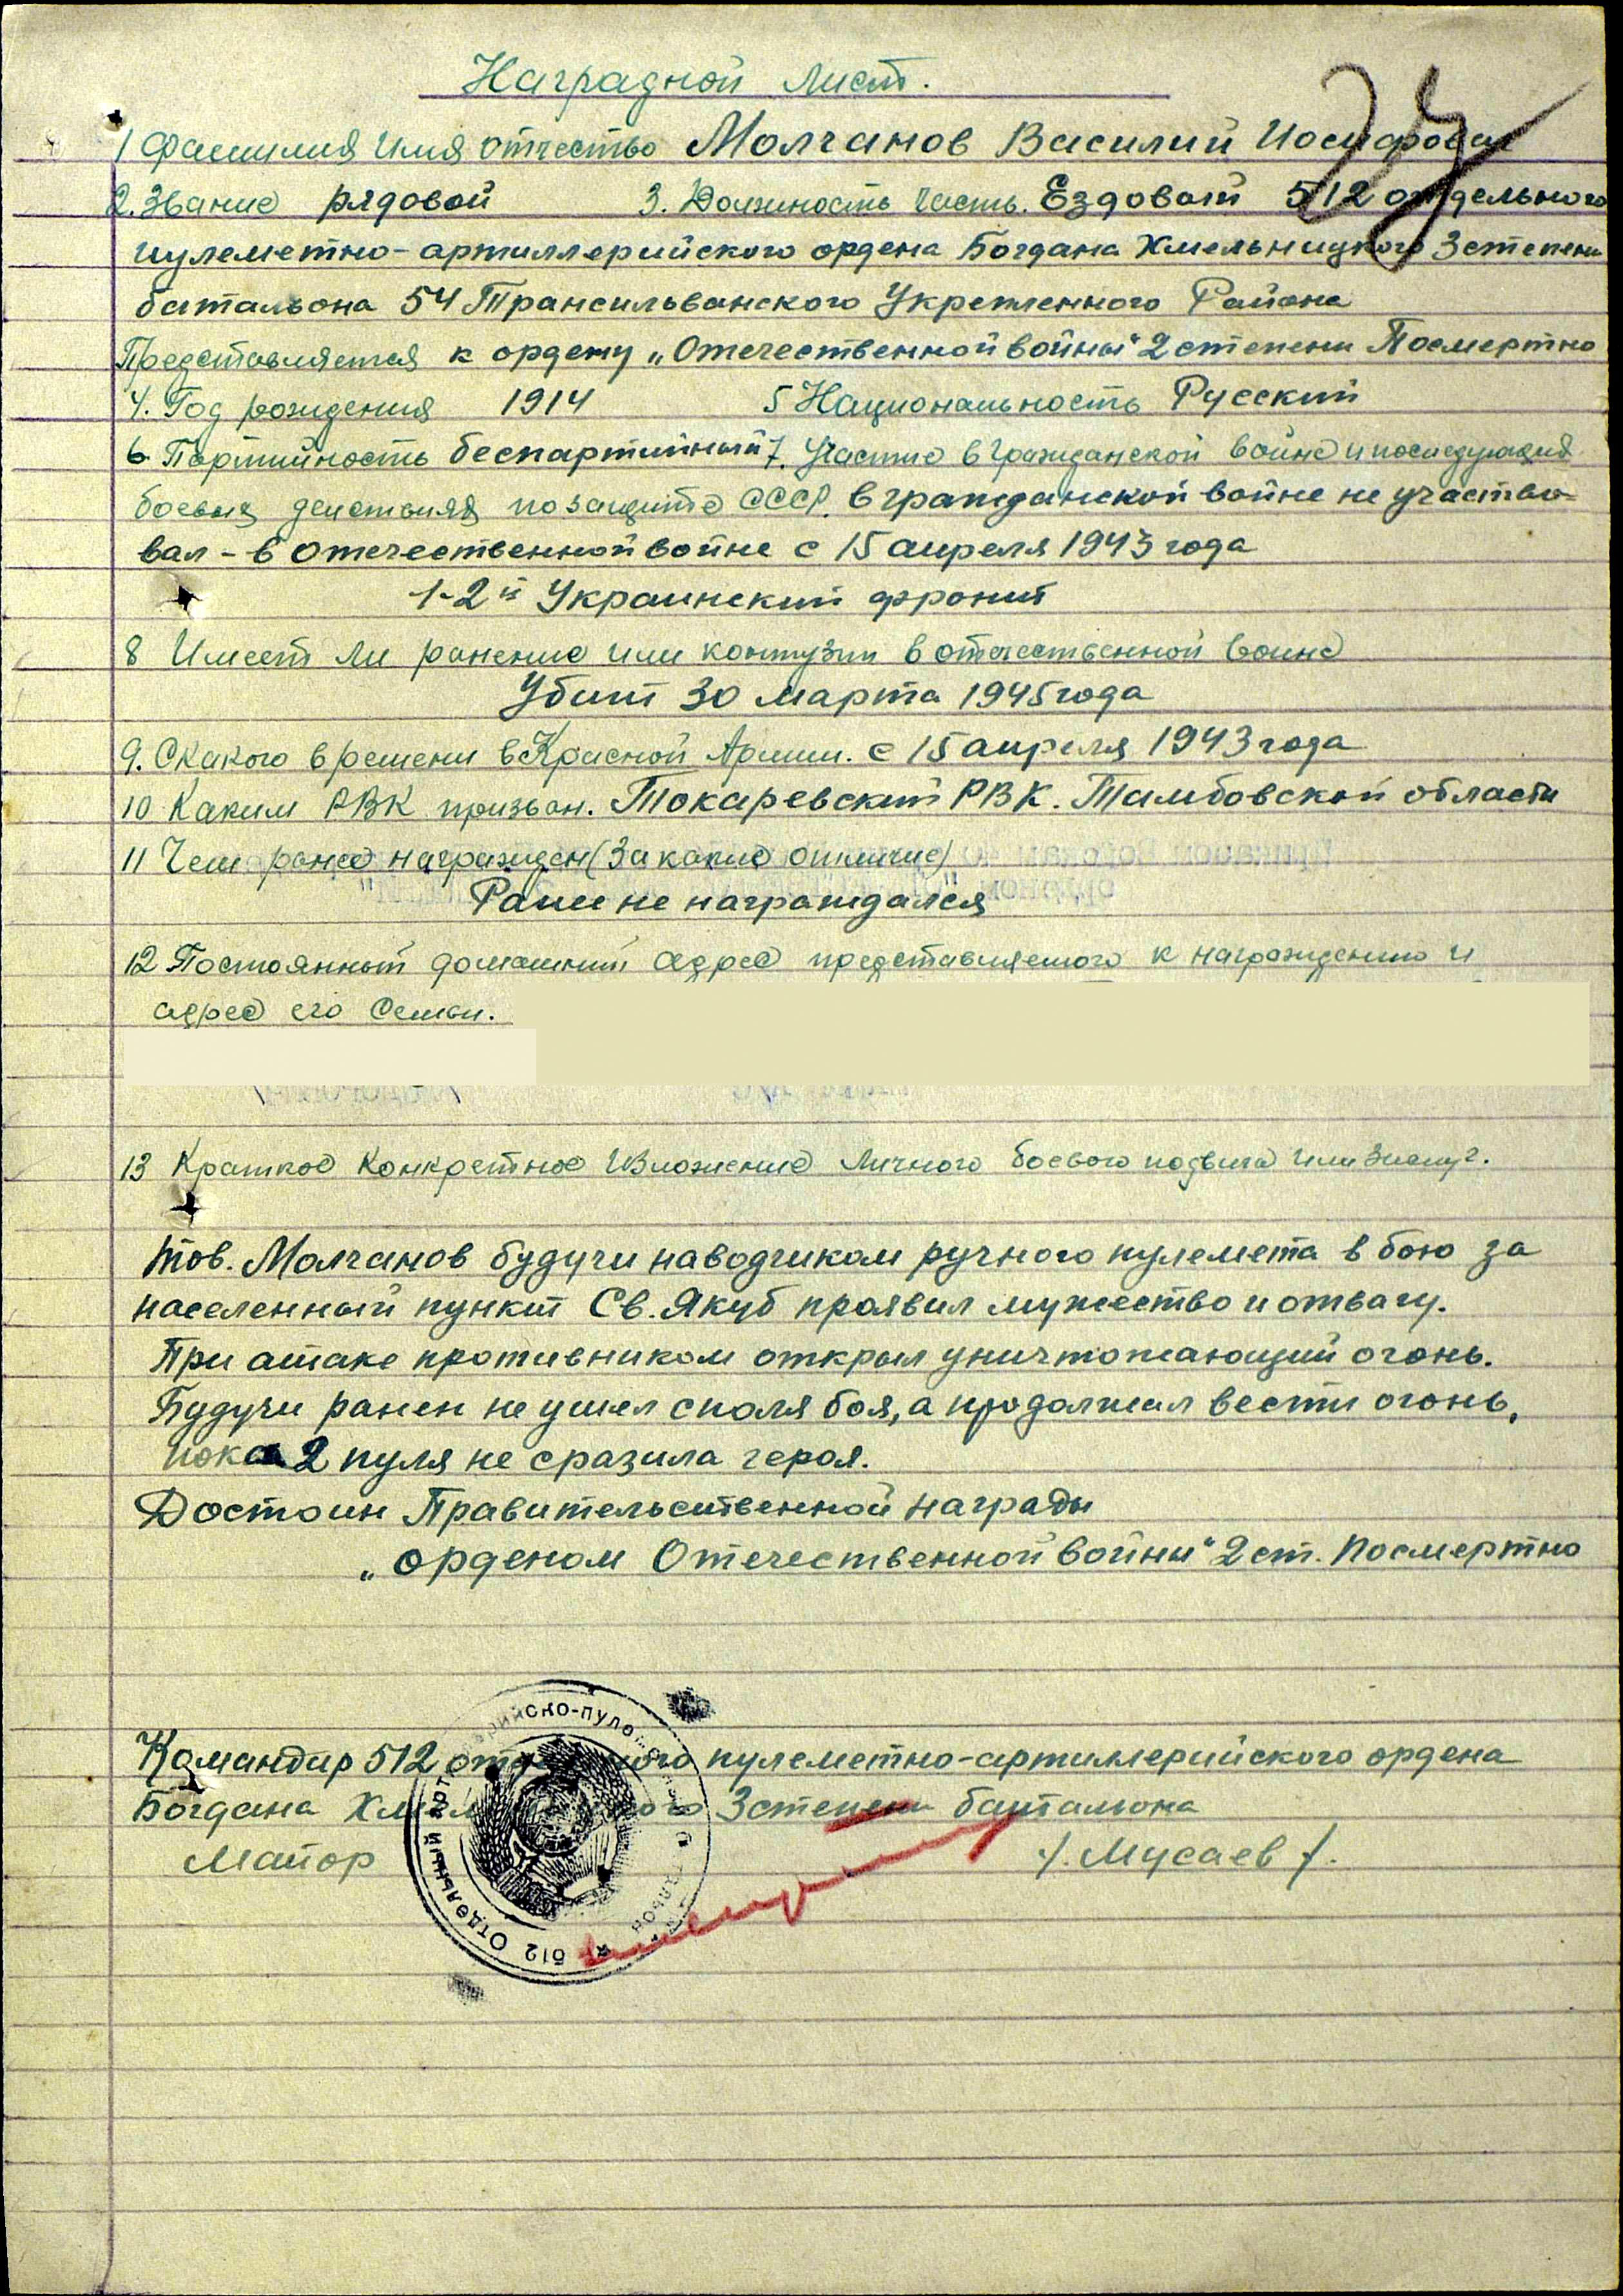 Наградной лист.
1 Фамилия Имя отчество Молчанов Василий Иосифович
2. Звание рядовой 3. Должность часть. Ездовой 512 отдельного
пулеметно-артиллерийского ордена Богдана Хмельницкого 3 степени
батальона 54 Трансильванского Укрепленного Района
Представляется к ордену „Отечественной войны" 2 степени Посмертно
4. Год рождения 1914 5 Национальность Русский
6 Партийность беспартийный 7. Участие в гражданской войне и последующих
боевых действиях по защите СССР. в гражданской войне не участво-
вал - в отечественной войне с 15 апреля 1943 года
1-2й Украинский фронт
8 Имеет ли ранение или контузии в отечественной войне
Убит 30 марта 1945 года
9. С какого времени в Красной Армии. с 15 апреля 1943 года
10 Каким РВК призван. Токаревский РВК. Тамбовской области
11 Чем ранее награжден (За какие отличие)
Ранее не награждался
12 Постоянный домашний адрес представляемого к награждению и
адрес его семьи.
13 Краткое Конкретное Изложение личного боевого подвига или заслуг.
тов. Молчанов будучи наводчиком ручного пулемета в бою за
населенный пункт Св. Якуб проявил мужество и отвагу.
При атаке противником открыл уничтожающий огонь.
Будучи ранен не ушел с поля боя, а продолжал вести огонь,
пока 2 пуля не сразила героя.
Достоин Правительственной награды
„орденом Отечественной войны" 2 ст. Посмертно
Командир 512 отдельного пулеметно-артиллерийского ордена
Богдана Хмельницкого 3 степени батальона
Майор /. Мусаев /.
512 Отдельный